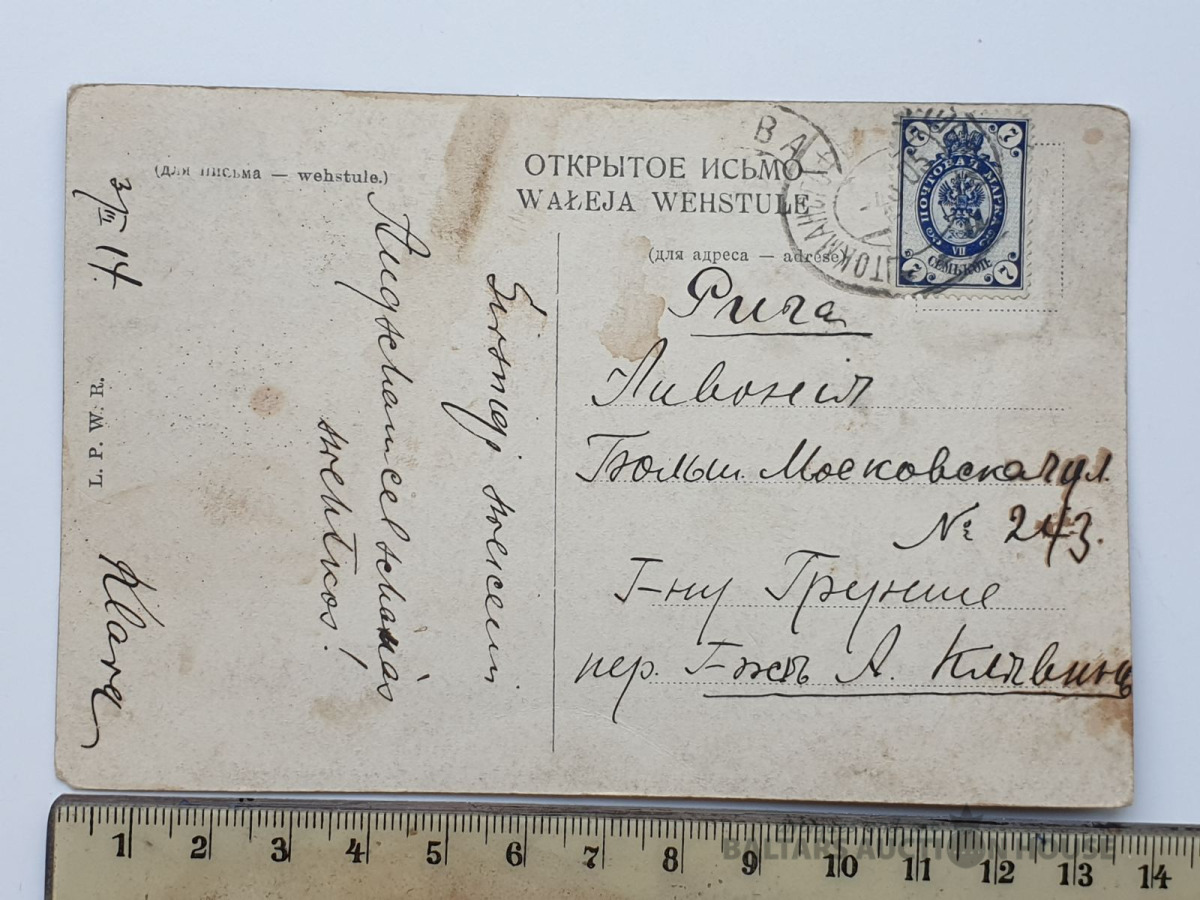 (для письма — wehstule.)
ОТКРЫТОЕ ИСЬМО
WAŁEJA WEHSTULE
(для адреса — adrese)
7 7
ПОЧТОВАЯ МАРКА
VII
СЕМЬ КОП.
7 7
Рига
Ливонія
Больш. Московская ул.
№ 243.
Г-ну Грункие
пер. Г-жѣ А. Клявинь
Sirsnigi sweeeni
Augschamcelschanās
swehtkos!
Klara
3/III 14.
L. P. W. R.
1 2 3 4 5 6 7 8 9 10 11 12 13 14
BALTARS AUCTION HOUSE